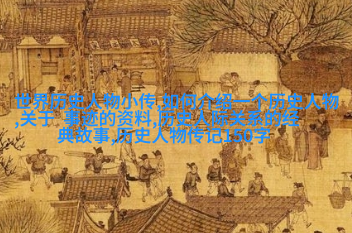 世界历史人物小传,如何介绍一个历史人物
,关于 事迹的资料,历史人际关系的经
典故事,历史人物传记150字